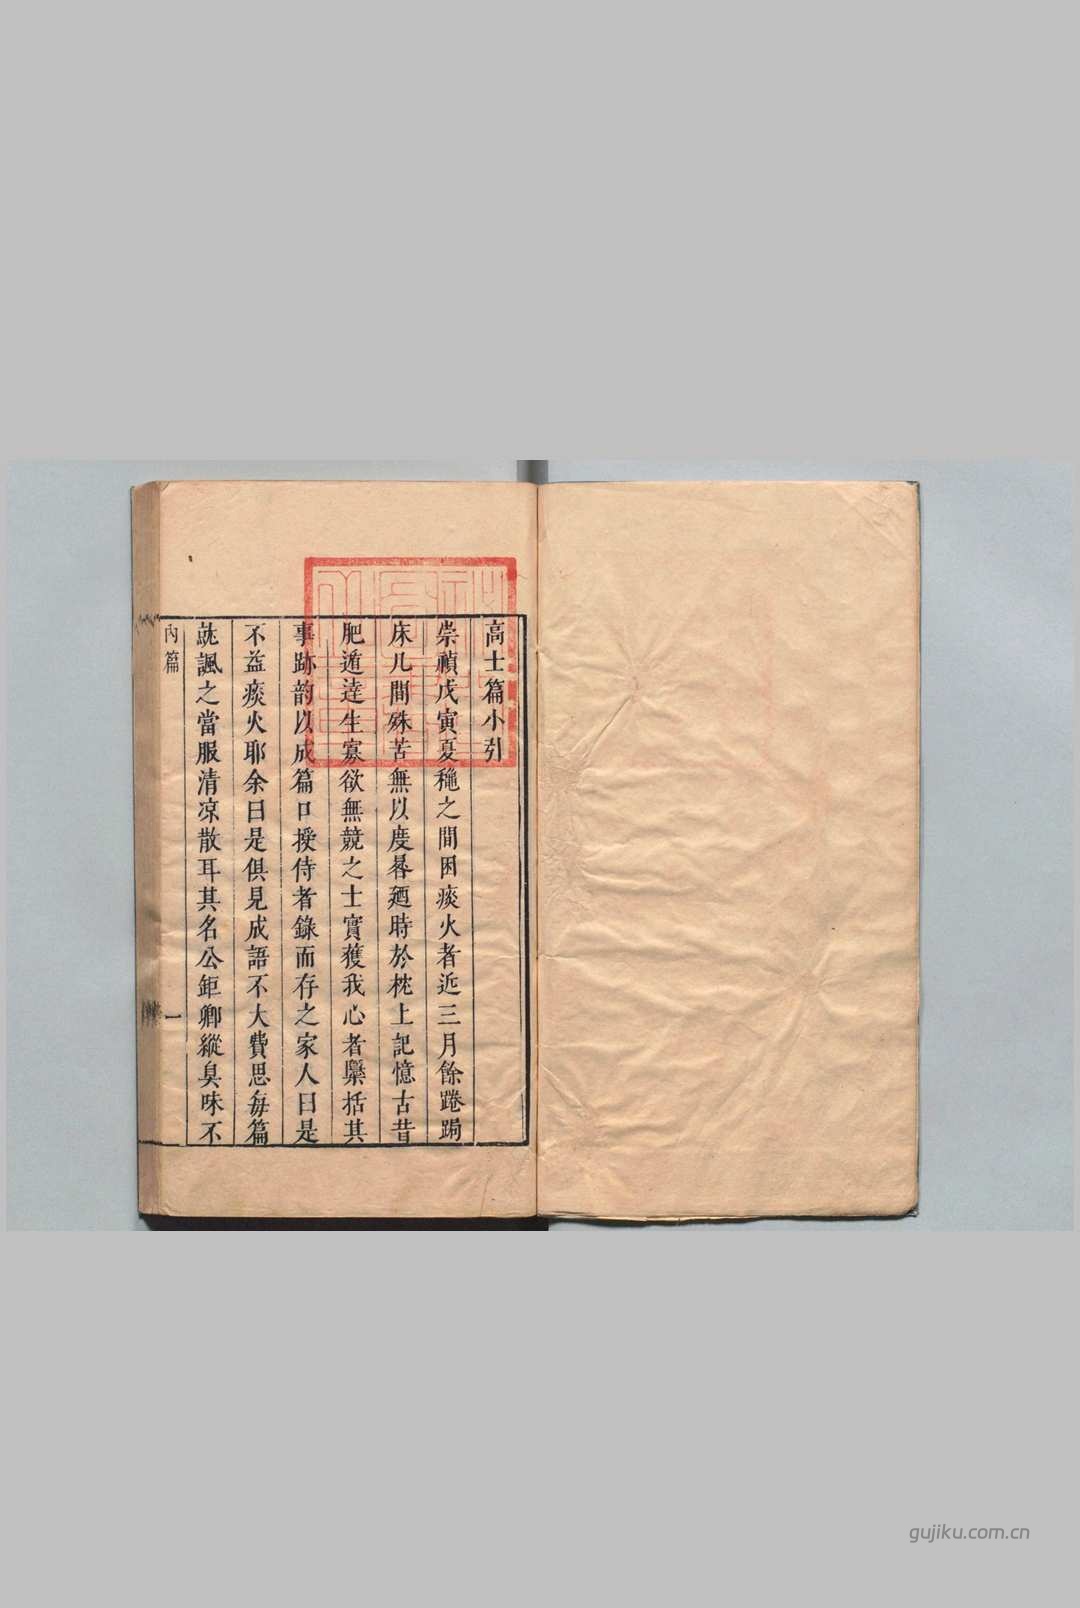 高士篇小引
崇禎戊寅夏穐之間困痰火者近三月餘踡跼
床几間殊苦無以度晷廼時於枕上記憶古昔
肥遁達生寡欲無競之士實獲我心者檃括其
事跡韵以成篇口授侍者錄而存之家人曰是
不益痰火耶余曰是俱見成語不大費思每篇
誂諷之當服清凉散耳其名公鉅卿縱臭味不
內篇
一
gujiku.com.cn